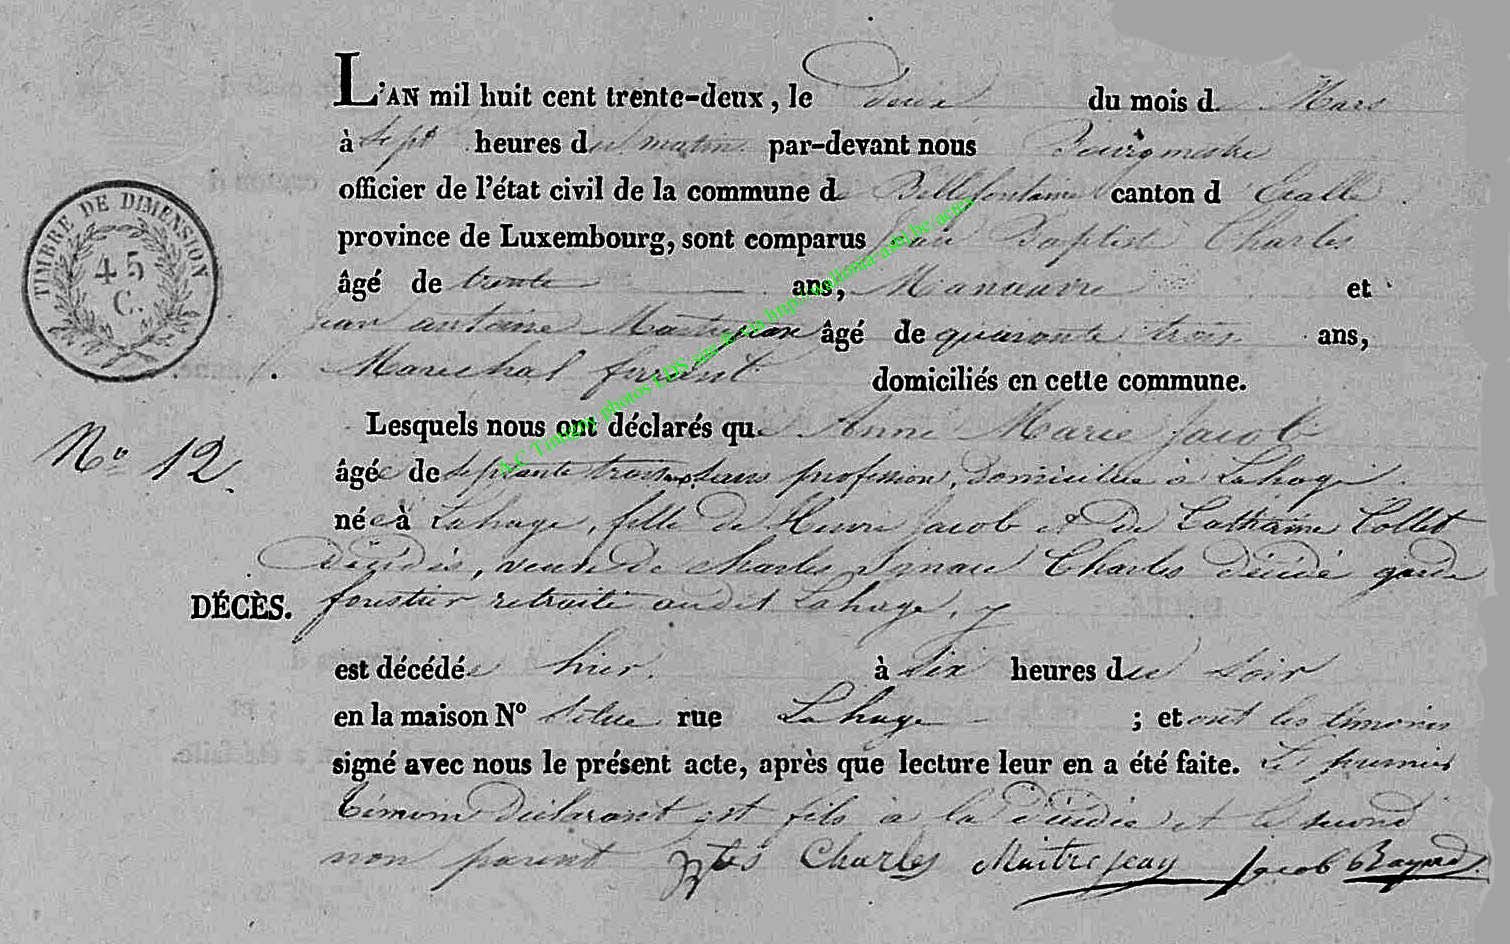 L'AN mil huit cent trente-deux, le deux du mois de Mars
à Sept heures du matin par-devant nous Bourgmestre
officier de l'état civil de la commune de Bellefontaine canton d' Etalle
province de Luxembourg, sont comparus Jean Baptiste Charles
âgé de trente ans, Manœuvre et
jean antoine Maitrejean âgé de quarante trois ans,
Marechal ferrant domiciliés en cette commune.
Lesquels nous ont déclarés que Anne Marie Jacob
TIMBRE DE DIMENSION
45
C.
A.C Tintigny photos LDS sur
N° 12.
âgée de septante trois ans, sans profession, domiciliée à Lahage.
née à Lahage, fille de Henri Jacob et de Catherine Collet
Décédés, veuve de Charles Charles décédé garde
DÉCÈS. forestier retraité audit Lahage.
est décédée hier. à Six heures du Soir
en la maison N° située rue Lahage ; et ont les témoins
signé avec nous le présent acte, après que lecture leur en a été faite. Le premier
témoin Déclarant est fils à la Décédée et le second
non parent Charles Maitrejean Jacob